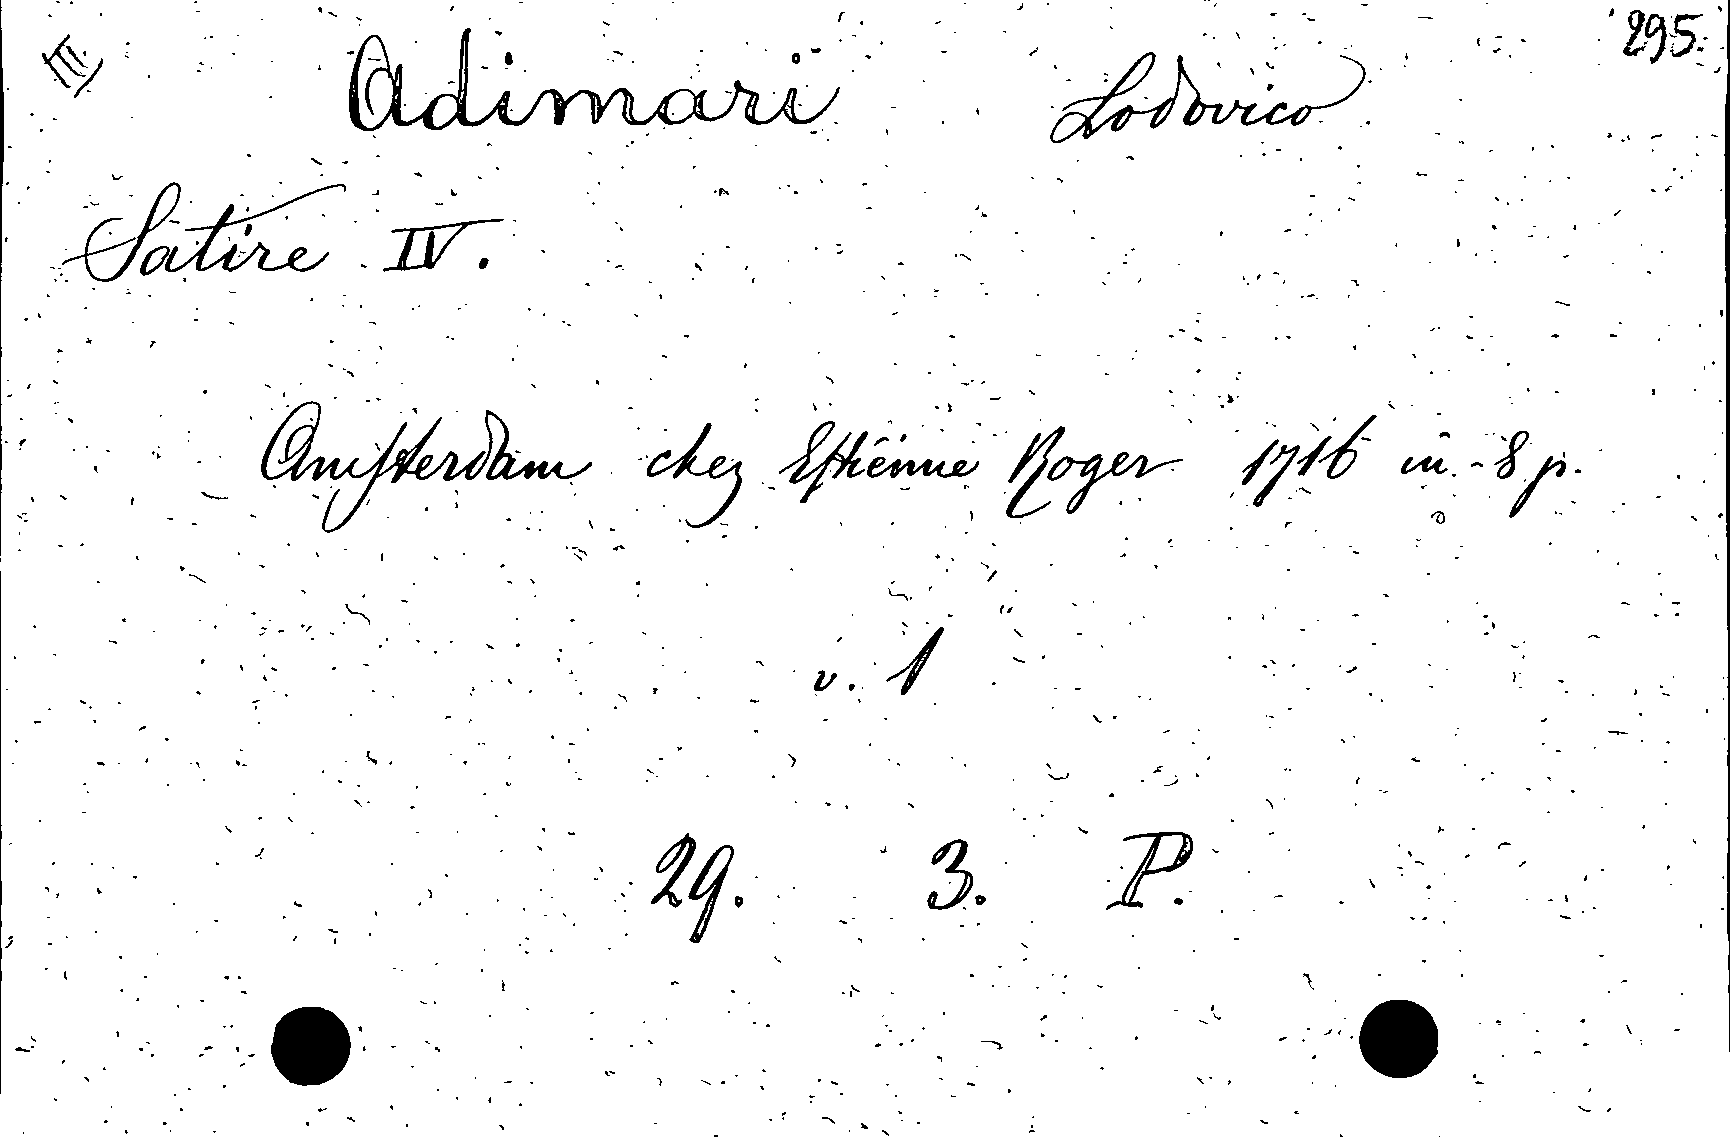 III 295.
Adimari Lodovico
Satire IV.
Amsterdam chez Esthienne Roger 1716 in-8 p.
v. 1
29. 3. P.